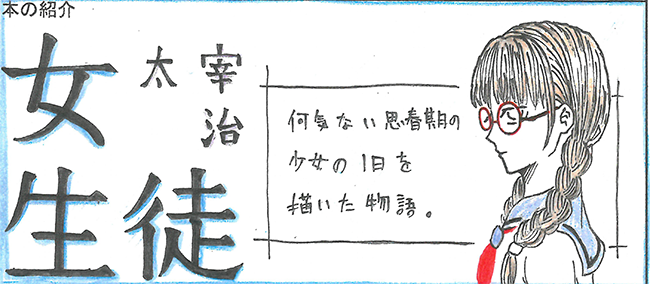 本の紹介
女生徒
太宰治
何気ない思春期の
少女の1日を
描いた物語。